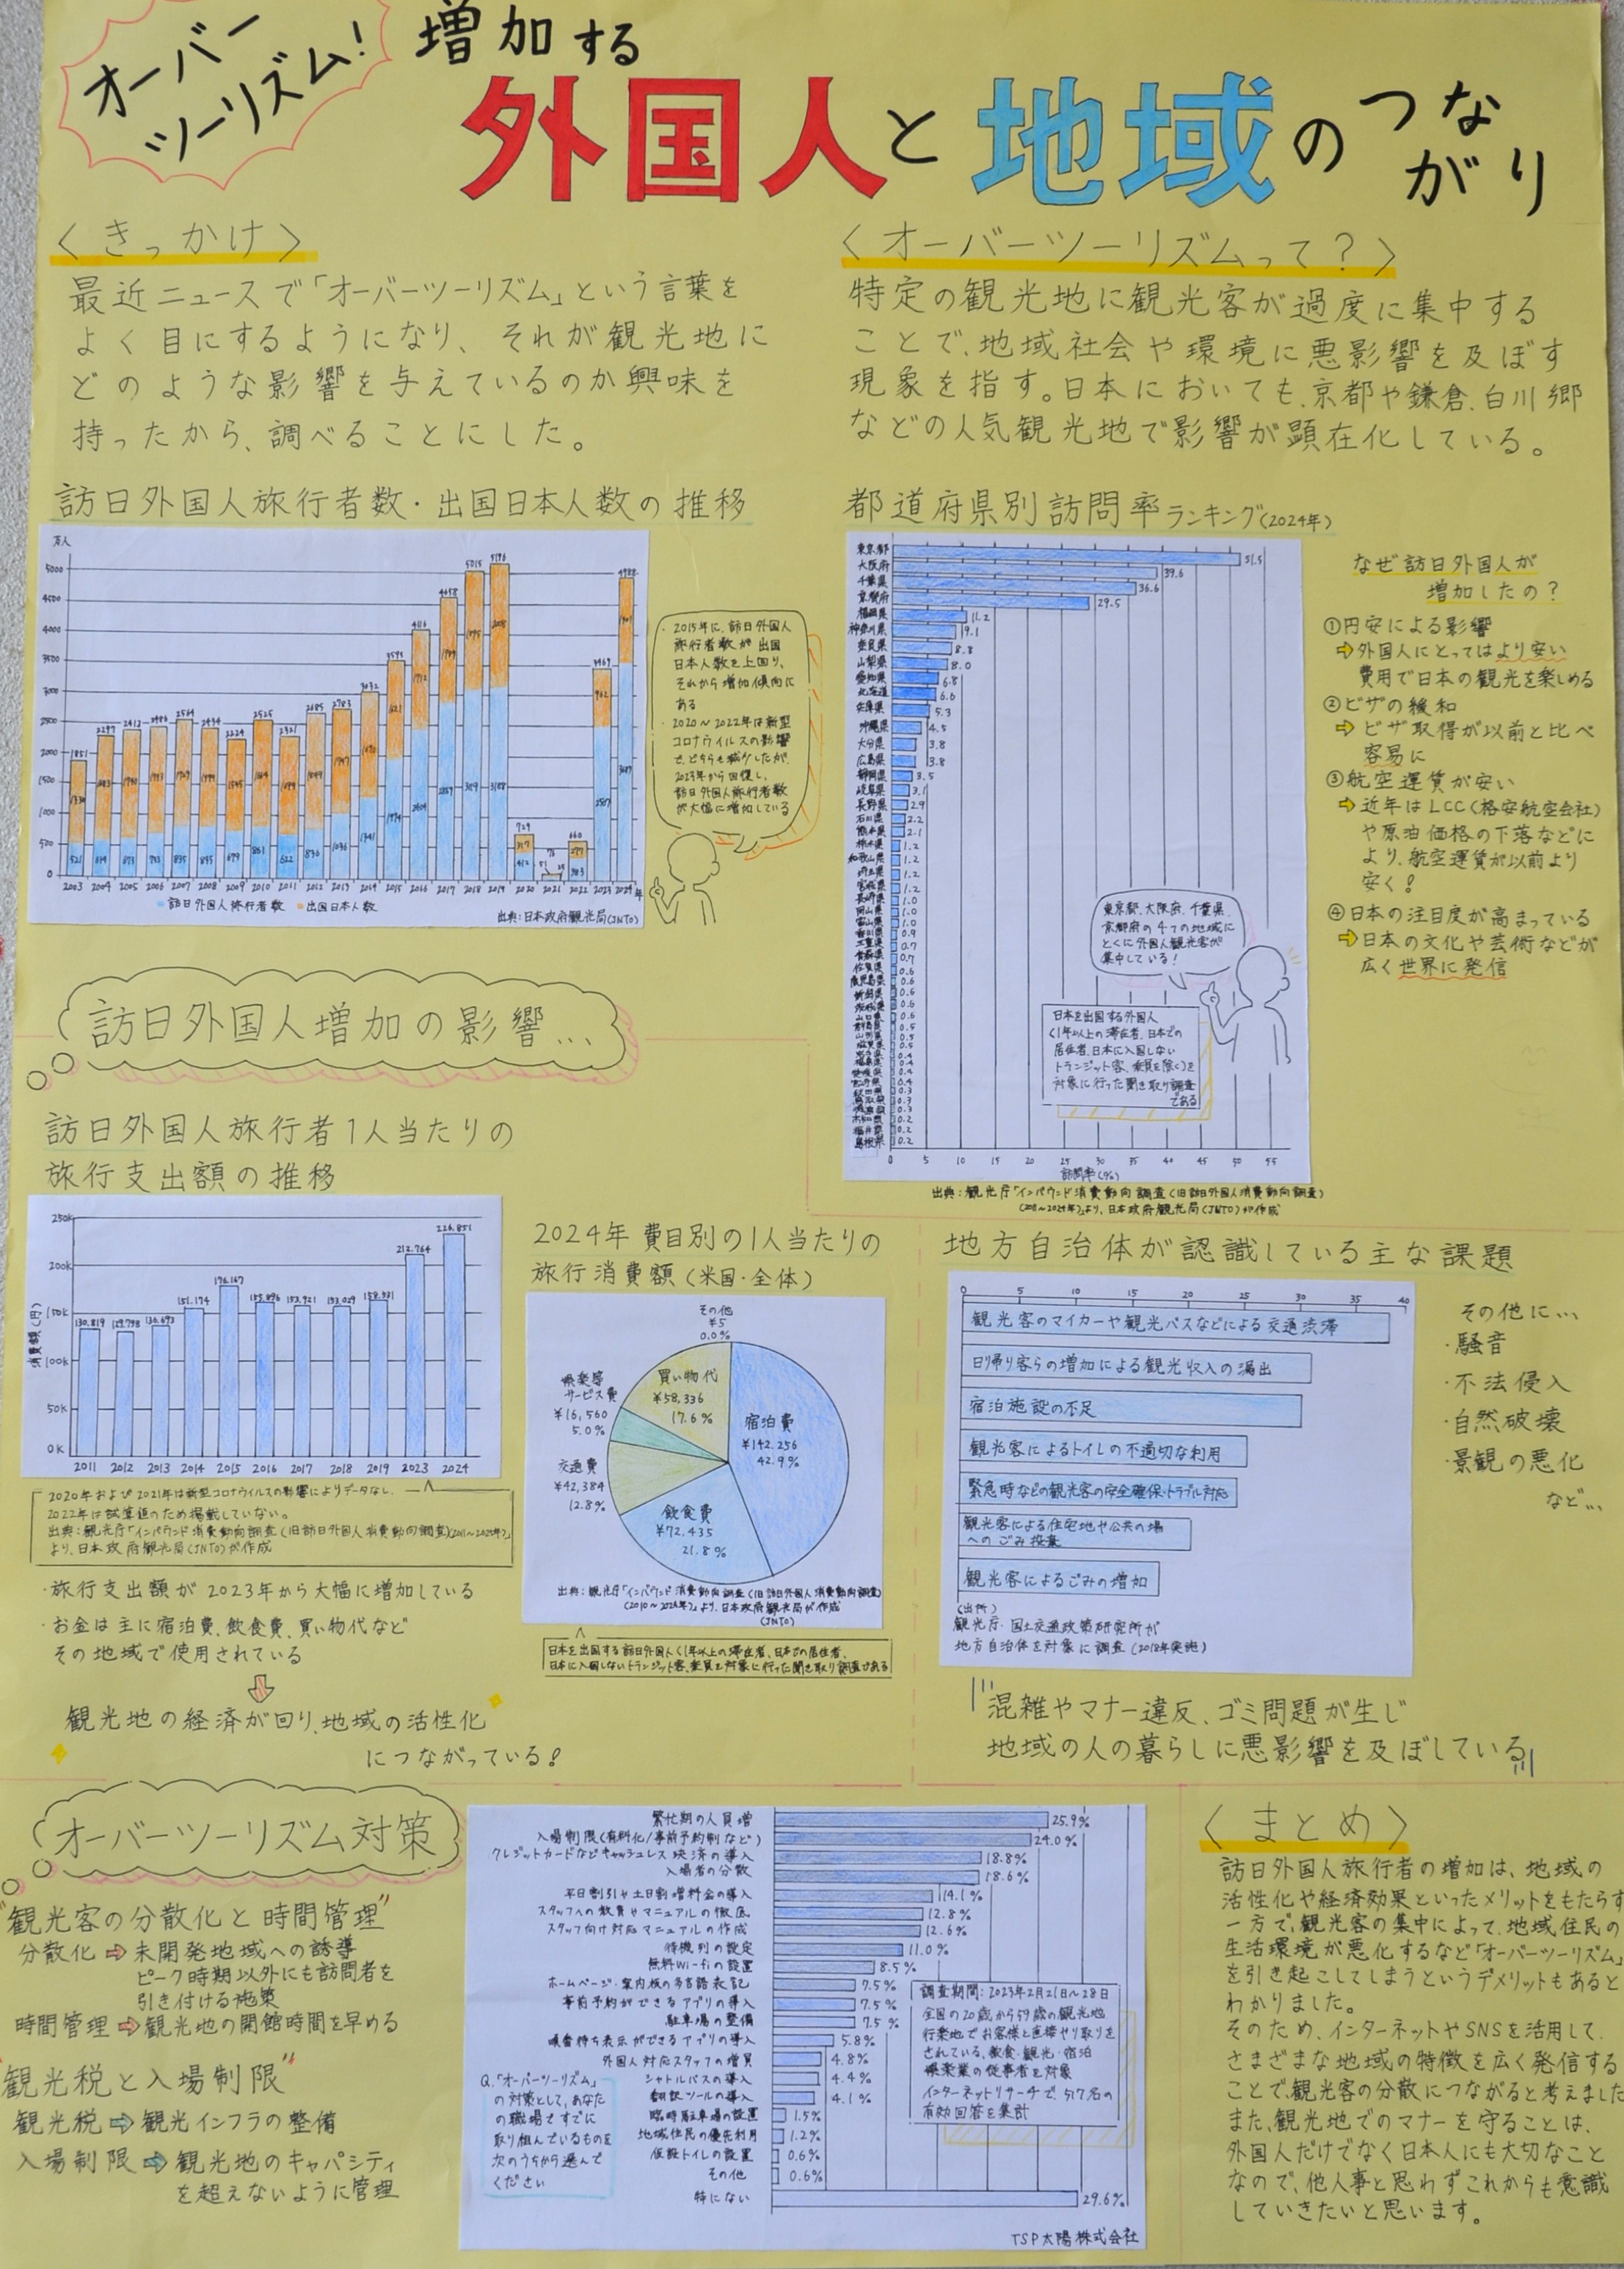 オーバー
ツーリズム!
増加する
外国人と地域のつな
がり
〈きっかけ〉
最近ニュースで「オーバーツーリズム」という言葉を
よく目にするようになり、それが観光地に
どのような影響を与えているのか興味を
持ったから、調べることにした。
〈オーバーツーリズムって?〉
特定の観光地に観光客が過度に集中する
ことで、地域社会や環境に悪影響を及ぼす
現象を指す。日本においても、京都や鎌倉、白川郷
などの人気観光地で影響が顕在化している。
訪日外国人旅行者数・出国日本人数の推移
万人
5000
4500
4000
3500
3000
2500
2000
1500
1000
500
0
2003 2004 2005 2006 2007 2008 2009 2010 2011 2012 2013 2014 2015 2016 2017 2018 2019 2020 2021 2022 2023 2024 年
訪日外国人旅行者数 出国日本人数
出典:日本政府観光局(JNTO)
・2015年に、訪日外国人
旅行者数が出国
日本人数を上回り、
それから増加傾向に
ある
・2020〜2022年は新型
コロナウイルスの影響
でどちらも減少したが、
2023年から回復し、
訪日外国人旅行者数
が大幅に増加している
都道府県別訪問率ランキング(2024年)
東京都 51.5
大阪府 39.6
千葉県 36.6
京都府 29.5
福岡県 11.2
神奈川県 9.1
奈良県 8.8
山梨県 8.0
愛知県 6.8
北海道 6.6
兵庫県 5.3
沖縄県 4.5
大分県 3.8
広島県 3.8
静岡県 3.5
岐阜県 3.1
長野県 2.9
石川県 2.2
熊本県 2.1
栃木県 1.2
和歌山県 1.2
埼玉県 1.2
宮城県 1.2
長崎県 1.0
岡山県 1.0
富山県 1.0
香川県 0.9
三重県 0.7
青森県 0.7
佐賀県 0.6
鹿児島県 0.6
新潟県 0.6
茨城県 0.6
山口県 0.6
群馬県 0.5
山形県 0.5
滋賀県 0.5
0 5 10 15 20 25 30 35 40 45 50 55
訪問率(%)
東京都、大阪府、千葉県、
京都府の4つの地域に
とくに外国人観光客が
集中している!
日本を出国する外国人
(1年以上の滞在者、日本での
居住者、日本に入国しない
トランジット客、乗員を除く)を
対象に行った聞き取り調査
である
出典:観光庁「インバウンド消費動向調査(旧訪日外国人消費動向調査)
(2011〜2024年)」より、日本政府観光局(JNTO)が作成
なぜ訪日外国人が
増加したの?
①円安による影響
⇨外国人にとってはより安い
費用で日本の観光を楽しめる
②ビザの緩和
⇨ビザ取得が以前と比べ
容易に
③航空運賃が安い
⇨近年はLCC(格安航空会社)
や原油価格の下落などに
より、航空運賃が以前より
安く!
④日本の注目度が高まっている
⇨日本の文化や芸術などが
広く世界に発信
訪日外国人増加の影響...
訪日外国人旅行者1人当たりの
旅行支出額の推移
消費額(円)
250k
200k
150k
100k
50k
0k
130.819 129.798 136.693 151.174 176.167 155.896 153.921 153.029 158.931 212.764 226.851
2011 2012 2013 2014 2015 2016 2017 2018 2019 2023 2024
2020年および2021年は新型コロナウイルスの影響によりデータなし。
2022年は試算値のため掲載していない。
出典:観光庁「インバウンド消費動向調査(旧訪日外国人消費動向調査)
より、日本政府観光局(JNTO)が作成
・旅行支出額が2023年から大幅に増加している
・お金は主に宿泊費、飲食費、買い物代など
その地域で使用されている
観光地の経済が回り、地域の活性化
につながっている!
2024年 費目別の1人当たりの
旅行消費額(米国・全体)
その他
¥5
0.0%
買い物代
¥58,336
17.6%
娯楽等
サービス費
¥16,560
5.0%
交通費
¥42,384
12.8%
飲食費
¥72.435
21.8%
宿泊費
¥142.256
42.9%
出典:観光庁「インバウンド消費動向調査(旧訪日外国人消費動向調査)
(2010〜2024年)」より、日本政府観光局が作成
(JNTO)
日本を出国する訪日外国人(1年以上の滞在者、日本での居住者、
日本に入国しないトランジット客、乗員を対象に行った聞き取り調査である
地方自治体が認識している主な課題
0 5 10 15 20 25 30 35 40
観光客のマイカーや観光バスなどによる交通渋滞
日帰り客らの増加による観光収入の漏出
宿泊施設の不足
観光客によるトイレの不適切な利用
緊急時などの観光客の安全確保・トラブル対応
観光客による住宅地や公共の場
へのごみ投棄
観光客によるごみの増加
(出所)
観光庁・国土交通政策研究所が
地方自治体を対象に調査(2018年実施)
その他に...
・騒音
・不法侵入
・自然破壊
・景観の悪化
など...
混雑やマナー違反、ゴミ問題が生じ
地域の人の暮らしに悪影響を及ぼしている
オーバーツーリズム対策
"観光客の分散化と時間管理"
分散化⇨未開発地域への誘導
ピーク時期以外にも訪問者を
引き付ける施策
時間管理⇨観光地の開館時間を早める
"観光税と入場制限"
観光税⇨観光インフラの整備
入場制限⇨観光地のキャパシティ
を超えないように管理
繁忙期の人員増 25.9%
入場制限(有料化/事前予約制など) 24.0%
クレジットカードなどキャッシュレス決済の導入 18.8%
入場者の分散 18.6%
平日割引や土日割増料金の導入 14.1%
スタッフへの教育やマニュアルの徹底 12.8%
スタッフ向け対応マニュアルの作成 12.6%
待機列の設定 11.0%
無料Wi-fiの設置 8.5%
ホームページ・案内板の多言語表記 7.5%
事前予約ができるアプリの導入 7.5%
駐車場の整備 7.5%
順番待ち表示ができるアプリの導入 5.8%
外国人対応スタッフの増員 4.8%
シャトルバスの導入 4.4%
翻訳ツールの導入 4.1%
臨時駐車場の設置 1.5%
地域住民の優先利用 1.2%
仮設トイレの設置 0.6%
その他 0.6%
特にない 29.6%
Q.「オーバーツーリズム」
の対策として、あなた
の職場ですでに
取り組んでいるものを
次のうちから選んで
ください
調査期間:2023年2月21日〜28日
全国の20歳から59歳の観光地
行楽地でお客様と直接やり取りを
されている、飲食・観光・宿泊
娯楽業の従事者を対象
インターネットリサーチで、517名の
有効回答を集計
TSP太陽株式会社
〈まとめ〉
訪日外国人旅行者の増加は、地域の
活性化や経済効果といったメリットをもたらす
一方で、観光客の集中によって、地域住民の
生活環境が悪化するなど「オーバーツーリズム」
を引き起こしてしまうというデメリットもあると
わかりました。
そのため、インターネットやSNSを活用して、
さまざまな地域の特徴を広く発信する
ことで、観光客の分散につながると考えました
また、観光地でのマナーを守ることは、
外国人だけでなく日本人にも大切なこと
なので、他人事と思わずこれからも意識
していきたいと思います。